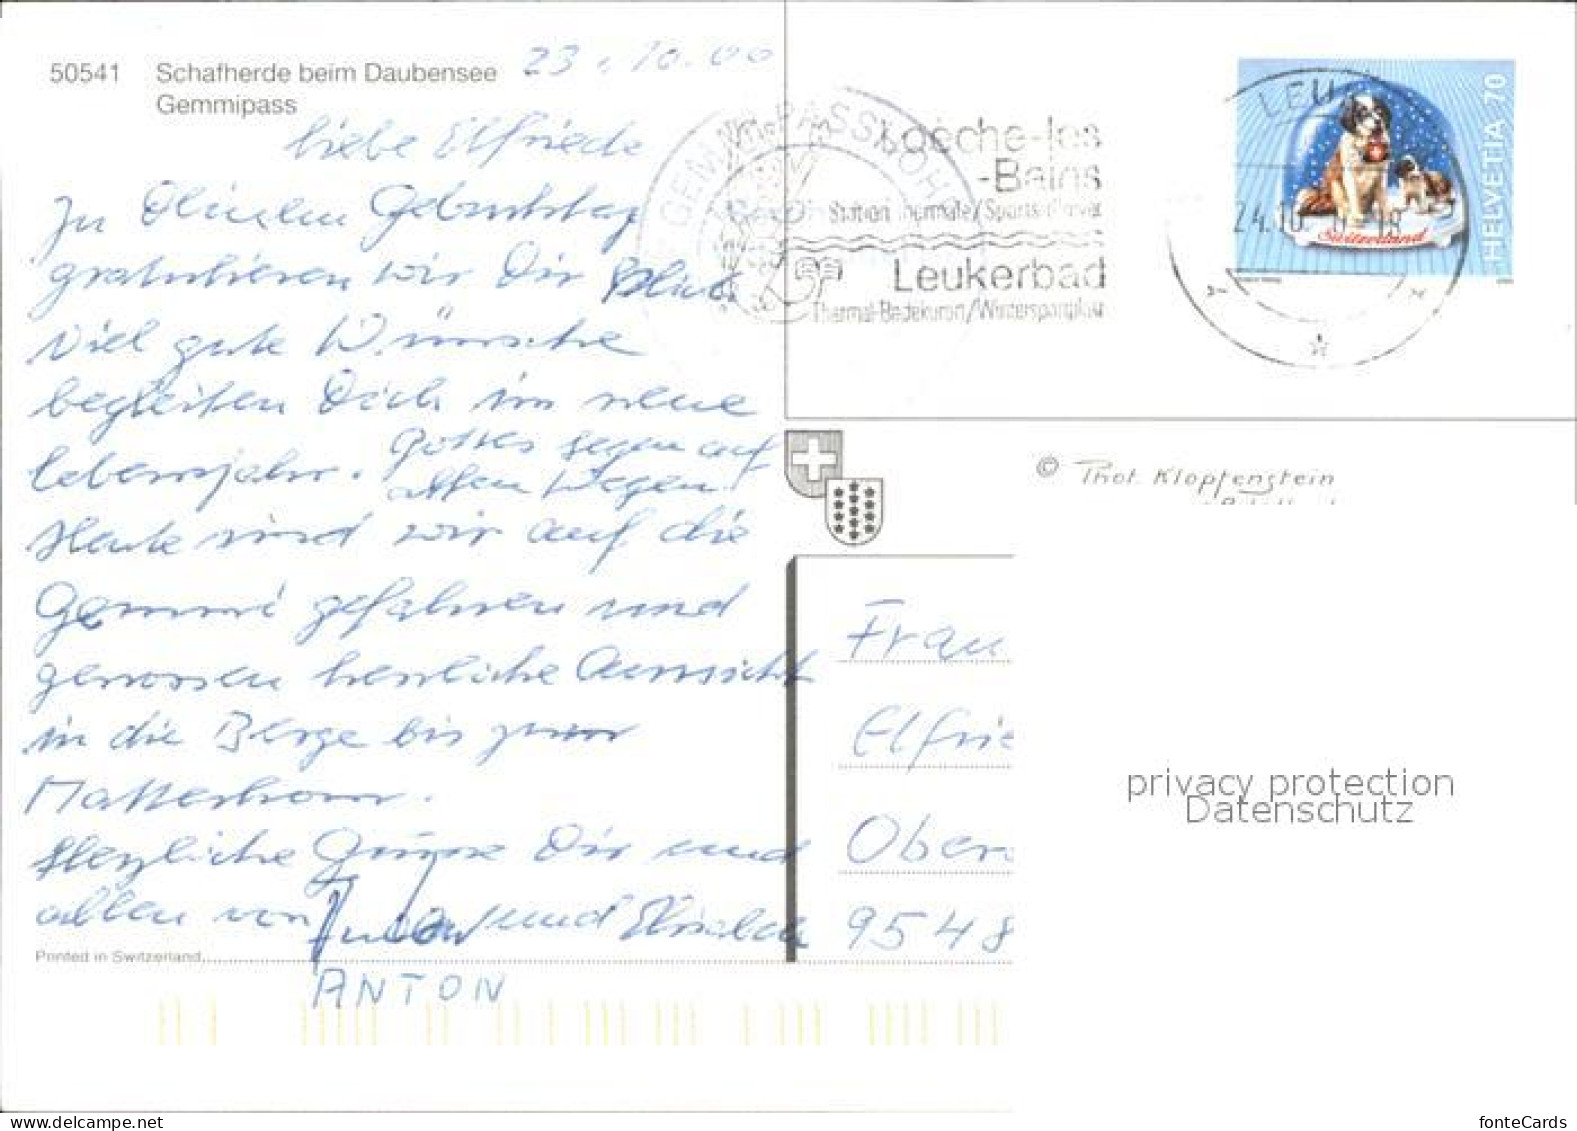 50541 Schafherde beim Daubensee
Gemmipass
23.10.00
liebe Elfriede
Zu Geburtstag
gratulieren wir Dir
Viel gute Wünsche
begleiten Dich im neue
Lebensjahr. Gottes segen auf
allen Wegen.
Heute sind wir auf die
Gemmi gefahren und
genossen herrliche Aussicht
in die Berge bis zum
Matterhorn.
Herzliche Grüsse Dir und
allen von und
ANTON
Printed in Switzerland
GEMMIPASSHÖH
Loèche-les
-Bains
Station thermale/Sports d'hiver
Leukerbad
Thermal-Badekurort/Wintersportplatz
LEU
24.10.
HELVETIA 70
Switzerland
© Phot. Klopfenstein
Frau
Elfrie
Ober
9548
privacy protection
Datenschutz
www.delcampe.net
fonteCards